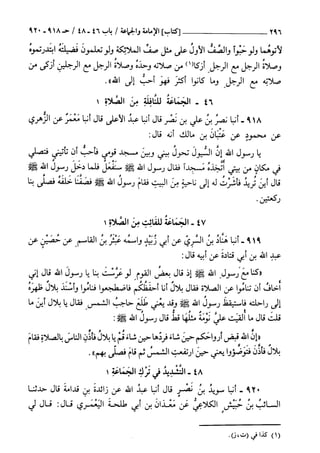 ٢٩٦ [كتاب] الإمامة والجماعة / باب ٤٦ - ٤٨ / حـ ٩١٨ - ٩٢٠
لأتوهما ولو حبوا والصف الأول على مثل صف الملائكة ولو تعلمون فضيلته ابتدرتموه
وصلاة الرجل مع الرجل أزكا(١) من صلاته وحده وصلاة الرجل مع الرجلين أزكى من
صلاته مع الرجل وما كانوا أكثر فهو أحب إلى الله».
٤٦ - الجماعة للنافلة من الصلاة ١
٩١٨ - أنبا نصر بن علي بن نصر قال أنبا عبد الأعلى قال أنبا معمر عن الزهري
عن محمود عن عتبان بن مالك أنه قال:
يا رسول الله إن السيول تحول بيني وبين مسجد قومي فأحب أن تأتيني فتصلي
في مكان من بيتي أتخذه مسجدا فقال رسول الله ﷺ سنفعل فلما دخل رسول الله ﷺ
قال أين تريد فأشرت له إلى ناحية من البيت فقام رسول الله ﷺ فصفنا خلفه فصلى بنا
ركعتين.
٤٧ - الجماعة للفائت من الصلاة ١
٩١٩ - أنبا هناد بن السري عن أبي زبيد واسمه عبثر بن القاسم عن حصين عن
عبد الله بن أبي قتادة عن أبيه قال:
«كنا مع رسول الله ﷺ إذ قال بعض القوم لو عرست بنا يا رسول الله قال إني
أخاف أن تناموا عن الصلاة فقال بلال أنا أحفظكم فاضطجعوا فناموا وأسند بلال ظهره
إلى راحلته فاستيقظ رسول الله ﷺ وقد يعني طلع حاجب الشمس فقال يا بلال أين ما
قلت قال ما ألقيت علي نومة مثلها قط قال رسول الله ﷺ:
«إن الله قبض أرواحكم حين شاء فردها حين شاء قم يا بلال فأذن الناس بالصلاة فقام
بلال فأذن فتوضؤوا يعني حين ارتفعت الشمس ثم قام فصلى بهم».
٤٨ - التشديد في ترك الجماعة ١
٩٢٠ - أنبا سويد بن نصر قال أنبا عبد الله عن زائدة بن قدامة قال حدثنا
السائب بن حبيش الكلاعي عن معدان بن أبي طلحة اليعمري قال: قال لي
(١) كذا في (ت، ز).